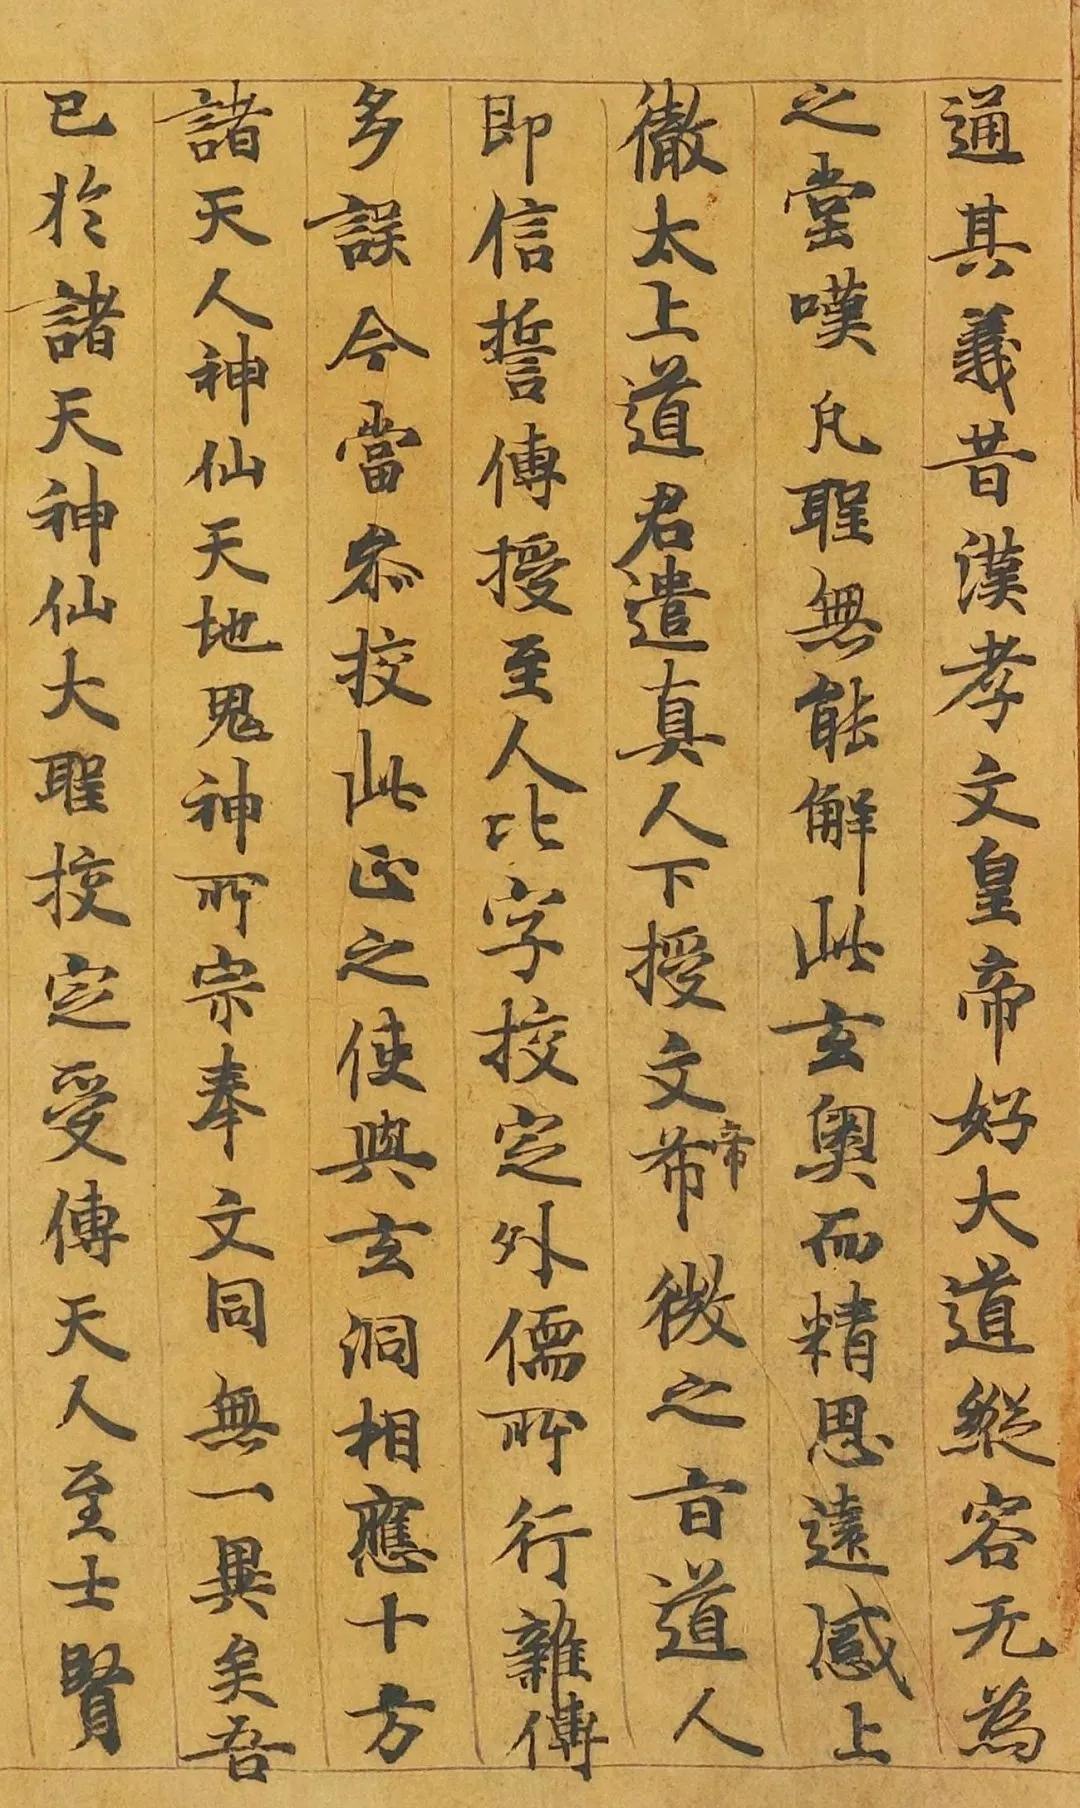 通其義昔漢孝文皇帝好大道縱容无為
之堂嘆凡聖無能解此玄奧而精思遠感上
徹太上道君遣真人下授文希帝微之旨道人
即信誓傳授至人比字校定外儒所行雜傳
多誤今當叅校此正之使與玄洞相應十方
諸天人神仙天地鬼神所宗奉文同無一異矣吾
已於諸天神仙大聖校定受傳天人至士賢